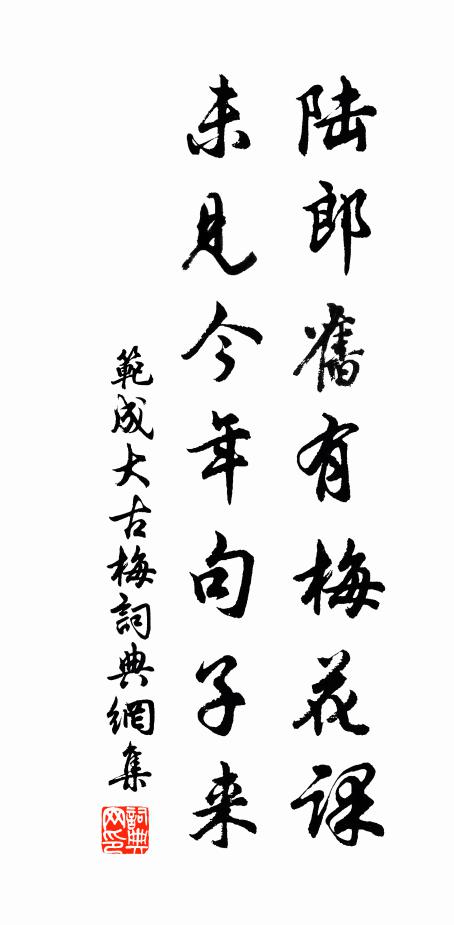 陆郎舊有梅花課
未見今年句子来
範成大古梅詞典網集
詞典网印